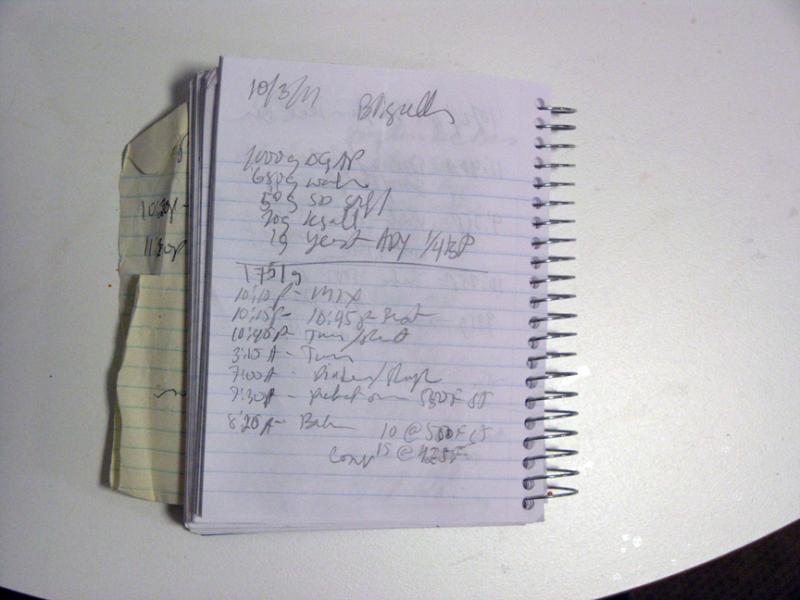 10/3/11 Baguettes
1000g AP
680g water
50g SD
20g
1g Yeast ADY 1/4tsp
1751g
10:10P - Mix
10:15P - 10:45P Rest
10:45P - Turn/Rest
3:15A - Turn
7:00A - Divide/Shape
7:30A - Preheat oven 550F
8:20A - Bake 10 @ 500F
Conv 15 @ 425F
10:30P -
11:30P